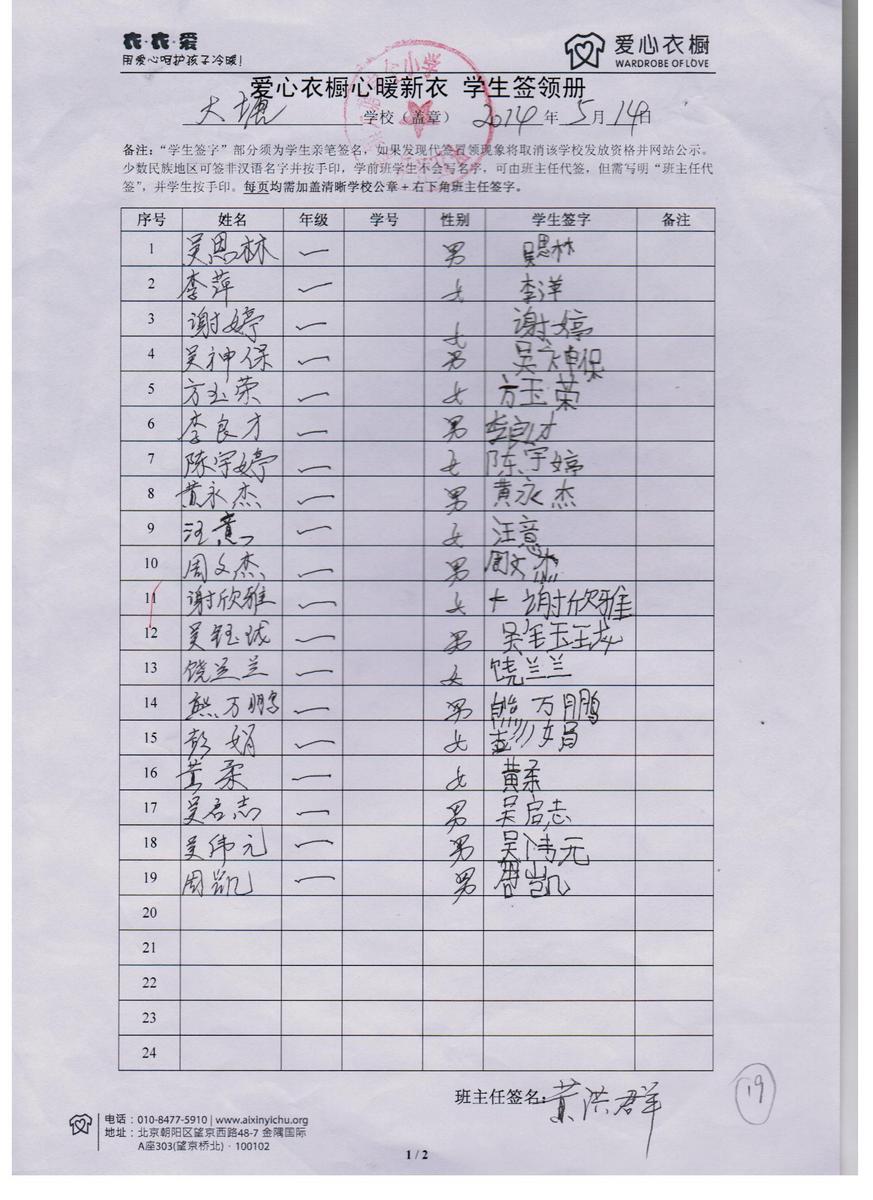 衣·衣·爱
用爱心呵护孩子冷暖!
爱心衣橱
WARDROBE OF LOVE
爱心衣橱心暖新衣 学生签领册
大塘 学校（盖章） 2014 年 5 月 14 日
备注：“学生签字”部分须为学生亲笔签名，如果发现代签冒领现象将取消该学校发放资格并网站公示。
少数民族地区可签非汉语名字并按手印，学前班学生不会写名字，可由班主任代签，但需写明“班主任代
签”，并学生按手印。每页均需加盖清晰学校公章+右下角班主任签字。
序号 姓名 年级 学号 性别 学生签字 备注
1 吴思林 一 男 吴思林
2 李萍 一 女 李洋
3 谢婷 一 女 谢婷
4 吴神保 一 男 吴神保
5 方玉荣 一 女 方玉荣
6 李良才 一 男 李良才
7 陈宇婷 一 女 陈宇婷
8 黄永杰 一 男 黄永杰
9 汪意 一 女 汪意
10 周文杰 一 男 周文杰
11 谢欣雅 一 女 谢欣雅
12 吴钰珑 一 男 吴钰珑
13 饶兰兰 一 女 饶兰兰
14 熊万鹏 一 男 熊万鹏
15 彭娟 一 女 彭娟
16 黄柔 一 女 黄柔
17 吴启志 一 男 吴启志
18 吴伟元 一 男 吴伟元
19 周凯 一 男 周凯
20
21
22
23
24
班主任签名: 黄洪群
19
电话：010-8477-5910 | www.aixinyichu.org
地址：北京朝阳区望京西路48-7 金隅国际
A座303(望京桥北) · 100102
1 / 2